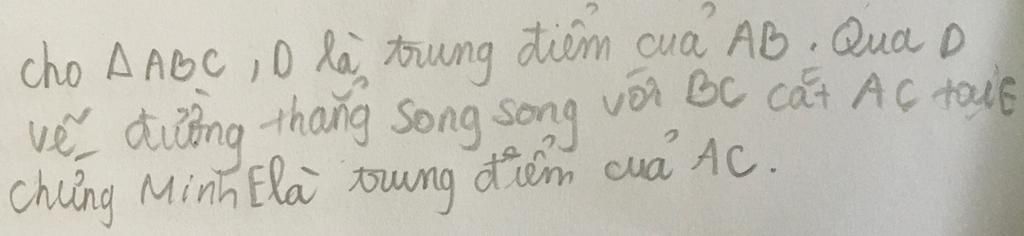 cho ΔABC, D là trung điểm của AB. Qua D
vẽ đường thẳng song song với BC cắt AC tại E
chứng Minh E là trung điểm của AC.